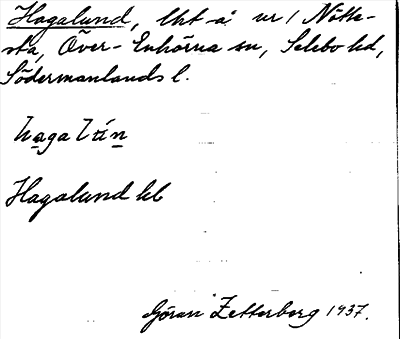 Hagalund, lht å ur 1 Nötte-
sta, Över-Enhörna sn, Selebo hd,
Södermanlands l.
Hagalund kb
Göran Zetterberg 1937.